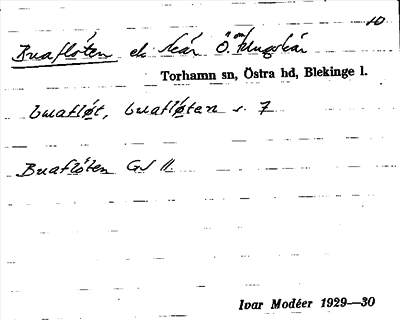 10
Buaflöten ek skär Ö. om
Torhamn sn, Östra hd, Blekinge l.
buafløt, buafløten s. 7
Buaflöten GS 11.
Ivar Modéer 1929—30